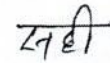 सही